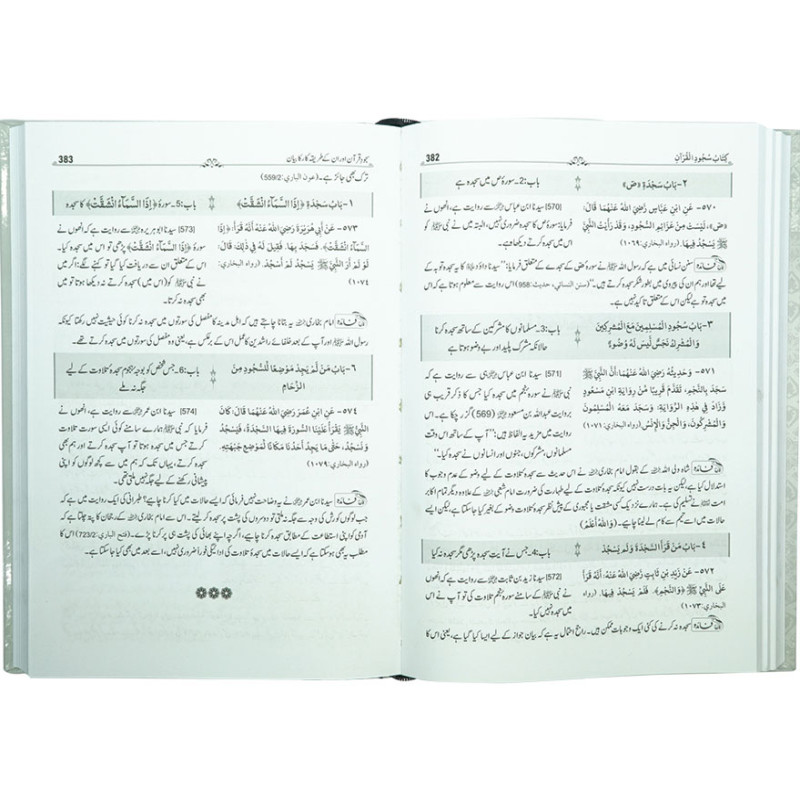 382
كِتَابُ سُجُودِ الْقُرْآنِ
٢- بَابُ سَجْدَةِ ﴿صٓ﴾
باب:2- سورۂ ص میں سجدہ ہے
٥٧٠- عَنِ ابْنِ عَبَّاسٍ رَضِيَ اللهُ عَنْهُمَا قَالَ:
﴿صٓ﴾، لَيْسَتْ مِنْ عَزَائِمِ السُّجُودِ، وَقَدْ رَأَيْتُ النَّبِيَّ
ﷺ يَسْجُدُ فِيهَا. [رواه البخاري: ١٠٦٩]
[570] سیدنا ابن عباس ؓ سے روایت ہے، انھوں نے
فرمایا: سورۂ ص کا سجدہ ضروری نہیں، البتہ میں نے نبی ﷺ کو
اس میں سجدہ کرتے دیکھا ہے۔
فائدہ: سنن نسائی میں ہے کہ رسول اللہ ﷺ نے سورۂ ص کے سجدے کے متعلق فرمایا: ”سیدنا داود ؑ کا یہ سجدہ توبہ کے
لیے تھا اور ہم ان کی پیروی میں بطور شکر سجدہ کرتے ہیں۔“ (سنن النسائي، حديث: 958) اس روایت سے معلوم ہوتا ہے کہ اس
میں سجدہ تو ہے لیکن اس کے متعلق تاکید نہیں ہے۔
٣- بَابُ سُجُودِ الْمُسْلِمِينَ مَعَ الْمُشْرِكِينَ
وَالْمُشْرِكُ نَجَسٌ لَيْسَ لَهُ وُضُوءٌ
باب:3- مسلمانوں کا مشرکین کے ساتھ سجدہ کرنا
حالانکہ مشرک پلید اور بے وضو ہوتا ہے
٥٧١- وَحَدِيثُهُ رَضِيَ اللهُ عَنْهُمَا أَنَّ النَّبِيَّ ﷺ
سَجَدَ بِالنَّجْمِ، تَقَدَّمَ قَرِيبًا مِنْ رِوَايَةِ ابْنِ مَسْعُودٍ
وَزَادَ فِي هٰذِهِ الرِّوَايَةِ: وَسَجَدَ مَعَهُ الْمُسْلِمُونَ
وَالْمُشْرِكُونَ، وَالْجِنُّ وَالْإِنْسُ. [رواه البخاري: ١٠٧١]
[571] سیدنا ابن عباس ؓ ہی سے روایت ہے کہ
نبی ﷺ نے سورۂ نجم میں سجدہ کیا جس کا ذکر قریب ہی
بروایت عبداللہ بن مسعود ؓ (569) گزر چکا ہے۔ اس
روایت میں مزید یہ الفاظ ہیں: ”آپ کے ساتھ اس وقت
مسلمانوں، مشرکوں، جنوں اور انسانوں نے سجدہ کیا۔“
فائدہ: شاہ ولی اللہ ؒ کے بقول امام بخاری ؒ نے اس حدیث سے سجدۂ تلاوت کے لیے وضو کے عدم وجوب کا
استدلال کیا ہے، لیکن یہ بات درست نہیں کیونکہ سجدۂ تلاوت کے لیے طہارت کی ضرورت امام شعبی ؒ کے علاوہ دیگر تمام اکابر
امت نے تسلیم کی ہے۔ ہمارے نزدیک کسی مشقت یا مجبوری کے پیش نظر سجدۂ تلاوت وضو کے بغیر کیا جا سکتا ہے لیکن ایسے
حالات میں اسے تیمم سے کام لے لینا چاہیے۔ (وَاللهُ أَعْلَمُ)
٤- بَابُ مَنْ قَرَأَ السَّجْدَةَ وَلَمْ يَسْجُدْ
باب:4- جس نے آیت سجدہ پڑھی مگر سجدہ نہ کیا
٥٧٢- عَنْ زَيْدِ بْنِ ثَابِتٍ رَضِيَ اللهُ عَنْهُ: أَنَّهُ قَرَأَ
عَلَى النَّبِيِّ ﷺ ﴿وَالنَّجْمِ﴾، فَلَمْ يَسْجُدْ فِيهَا. [رواه
البخاري: ١٠٧٣]
[572] سیدنا زید بن ثابت ؓ سے روایت ہے کہ انھوں
نے نبی ﷺ کے سامنے سورۂ نجم تلاوت کی تو آپ نے اس
میں سجدہ نہیں کیا۔
فائدہ: سجدہ نہ کرنے کی کئی ایک وجوہات ممکن ہیں۔ راجح احتمال یہ ہے کہ بیان جواز کے لیے ایسا کیا گیا ہے، یعنی اس کا
سجود قرآن اور ان کے طریقۂ کار کا بیان
383
ترک بھی جائز ہے۔ (عون الباري: 559/2)
١- بَابُ سَجْدَةِ ﴿إِذَا السَّمَآءُ انْشَقَّتْ﴾
باب:5- سورۂ ﴿إِذَا السَّمَآءُ انْشَقَّتْ﴾ کا سجدہ
٥٧٣- عَنْ أَبِي هُرَيْرَةَ رَضِيَ اللهُ عَنْهُ أَنَّهُ قَرَأَ: ﴿إِذَا
السَّمَآءُ انْشَقَّتْ﴾. فَسَجَدَ بِهَا. فَقِيلَ لَهُ فِي ذٰلِكَ، قَالَ:
لَوْ لَمْ أَرَ النَّبِيَّ ﷺ يَسْجُدُ لَمْ أَسْجُدْ. [رواه البخاري:
١٠٧٤]
[573] سیدنا ابو ہریرہ ؓ سے روایت ہے، انھوں نے
﴿إِذَا السَّمَآءُ انْشَقَّتْ﴾ پڑھی تو اس میں سجدہ کیا۔
اس کے متعلق ان سے دریافت کیا گیا تو کہنے لگے: اگر میں
نبی ﷺ کو (اس میں) سجدہ کرتے نہ دیکھا ہوتا تو میں
بھی سجدہ نہ کرتا۔
فائدہ: امام بخاری ؒ یہ بتانا چاہتے ہیں کہ اہل مدینہ کا مفصل کی سورتوں میں سجدہ نہ کرنا کوئی حیثیت نہیں رکھتا کیونکہ
رسول اللہ ﷺ اور آپ کے بعد خلفائے راشدین کا عمل اس کے برعکس ہے، یعنی وہ مفصل کی سورتوں میں سجدہ کرتے تھے۔
٦- بَابُ مَنْ لَمْ يَجِدْ مَوْضِعًا لِلسُّجُودِ مِنَ
الزِّحَامِ
باب:6- جس شخص کو بوجہ ہجوم سجدۂ تلاوت کے لیے
جگہ نہ ملے
٥٧٤- عَنِ ابْنِ عُمَرَ رَضِيَ اللهُ عَنْهُمَا قَالَ: كَانَ
النَّبِيُّ ﷺ يَقْرَأُ عَلَيْنَا السُّورَةَ فِيهَا السَّجْدَةُ، فَيَسْجُدُ
وَنَسْجُدُ، حَتَّى مَا يَجِدُ أَحَدُنَا مَكَانًا لِمَوْضِعِ جَبْهَتِهِ.
[رواه البخاري: ١٠٧٩]
[574] سیدنا ابن عمر ؓ سے روایت ہے، انھوں نے
فرمایا کہ نبی ﷺ ہمارے سامنے کوئی ایسی سورت تلاوت
کرتے جس میں سجدہ ہوتا تو آپ سجدہ کرتے اور ہم بھی
سجدہ کرتے، یہاں تک کہ ہم میں سے کچھ لوگوں کو اپنی
پیشانی رکھنے کے لیے جگہ نہیں ملتی تھی۔
فائدہ: سیدنا ابن عمر ؓ نے یہ وضاحت نہیں فرمائی کہ ایسے حالات میں کیا کرنا چاہیے؟ طبرانی کی ایک روایت میں ہے کہ
جب لوگوں کو رش کی وجہ سے جگہ نہ ملتی تو دوسروں کی پشت پر سجدہ کر لیتے۔ اس سے امام بخاری ؒ کے رجحان کا پتہ چلتا ہے کہ
آدمی کو اپنی استطاعت کے مطابق سجدہ کرنا چاہیے، اگرچہ اسے اپنے بھائی کی پشت ہی پر کرنا پڑے۔ (فتح الباري: 723/2) اس کا
مطلب یہ بھی ہو سکتا ہے کہ ایسے حالات میں سجدۂ تلاوت کی ادائیگی فوراً ضروری نہیں، اسے بعد میں بھی کیا جا سکتا ہے۔